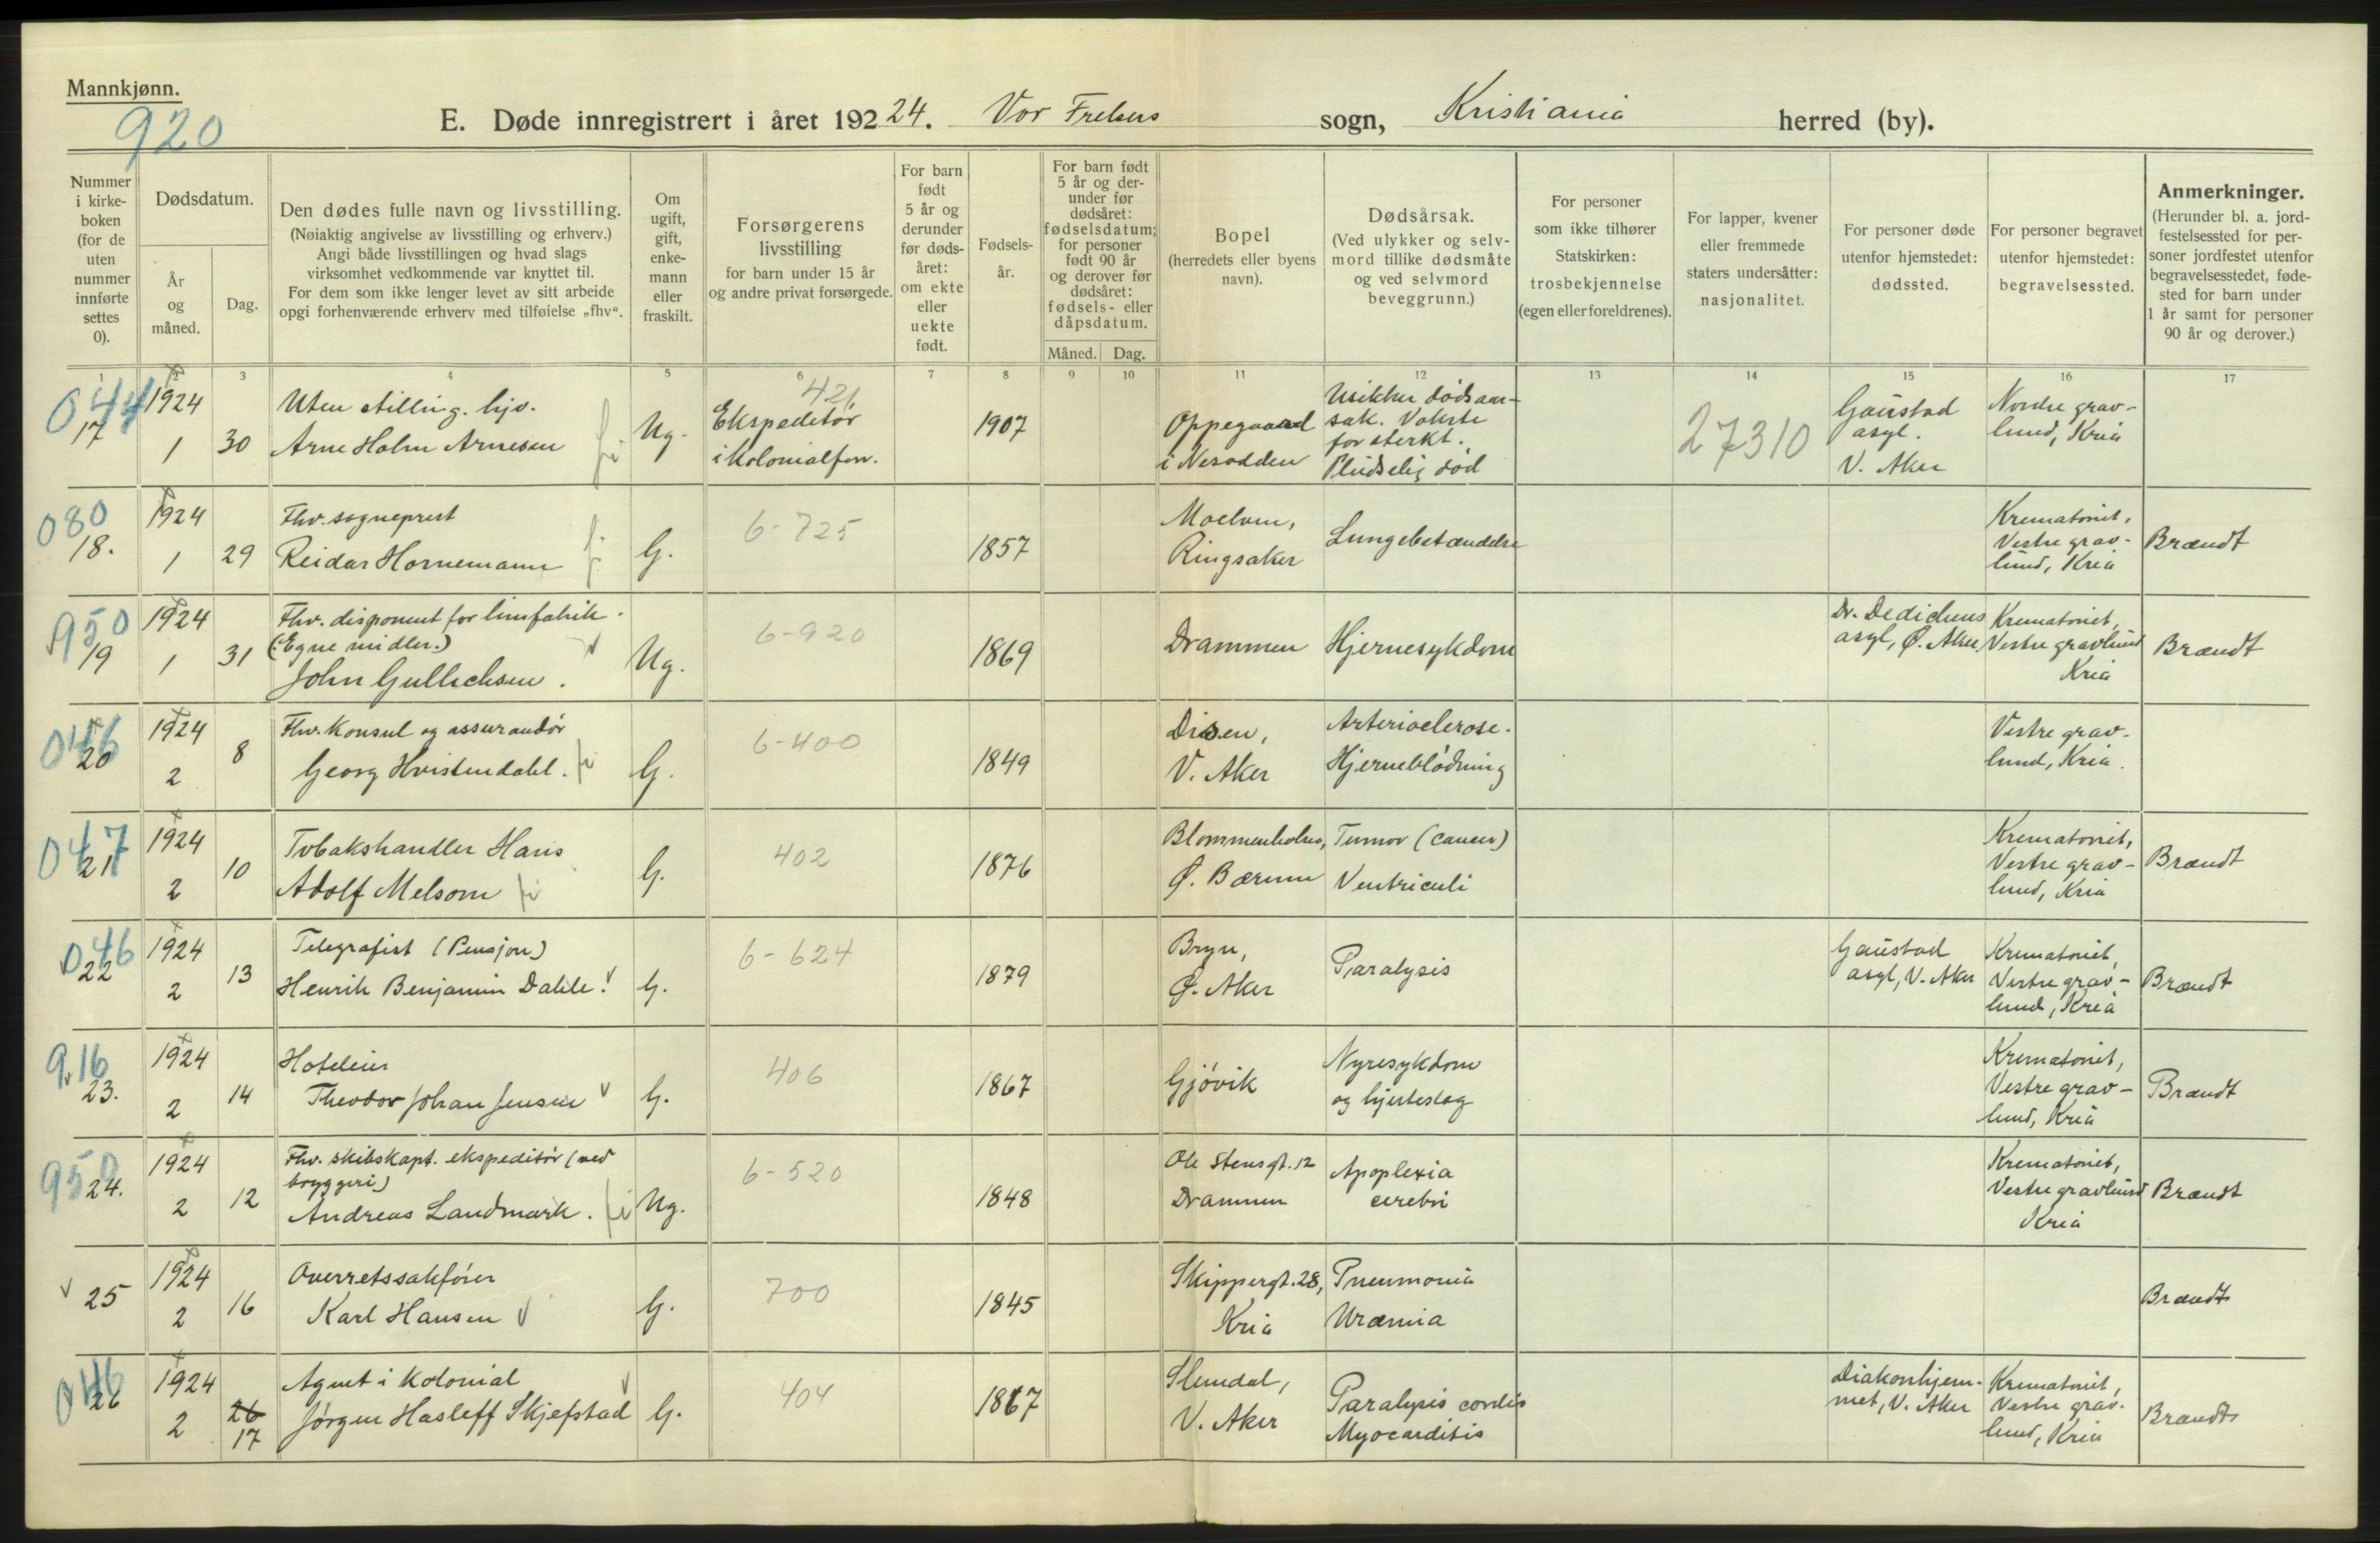 Mannkjønn.
920
E. Døde innregistrert i året 192 24. Vor Frelsers sogn, Kristiania herred (by).
Nummer
i kirke-
boken
(for de
uten
nummer
innførte
settes
0).
Dødsdatum.
År
og
måned.
Dag.
Den dødes fulle navn og livsstilling.
(Nøiaktig angivelse av livsstilling og erhverv.)
Angi både livsstillingen og hvad slags
virksomhet vedkommende var knyttet til.
For dem som ikke lenger levet av sitt arbeide
opgi forhenværende erhverv med tilføielse „fhv“.
Om
ugift,
gift,
enke-
mann
eller
fraskilt.
Forsørgerens
livsstilling
for barn under 15 år
og andre privat forsørgede.
For barn
født
5 år og
derunder
før døds-
året:
om ekte
eller
uekte
født.
Fødsels-
år.
For barn født
5 år og der-
under før
dødsåret:
fødselsdatum;
for personer
født 90 år
og derover før
dødsåret:
fødsels- eller
dåpsdatum.
Måned. Dag.
Bopel
(herredets eller byens
navn).
Dødsårsak.
(Ved ulykker og selv-
mord tillike dødsmåte
og ved selvmord
beveggrunn.)
For personer
som ikke tilhører
Statskirken:
trosbekjennelse
(egen eller foreldrenes).
For lapper, kvener
eller fremmede
staters undersåtter:
nasjonalitet.
For personer døde
utenfor hjemstedet:
dødssted.
For personer begravet
utenfor hjemstedet:
begravelsessted.
Anmerkninger.
(Herunder bl. a. jord-
festelsessted for per-
soner jordfestet utenfor
begravelsesstedet, føde-
sted for barn under
1 år samt for personer
90 år og derover.)
1 2 3 4 5 6 7 8 9 10 11 12 13 14 15 16 17
044
17
1924
1
30
Uten stilling. hjv.
Arne Holm Arnesen
Ug.
421
Ekspeditør
i kolonialforr.
1907
Oppegaard
i Nesodden
Usikker dødsaar-
sak. Vokste
for sterkt.
Pludselig død
27310
Gaustad
asyl.
V. Aker
Nordre grav-
lund, Kria
080
18.
1924
1
29
Fhv. sogneprest
Reidar Hornemann
G.
6-725
1857
Moelven,
Ringsaker
Lungebetændelse
Krematoriet,
Vestre grav-
lund, Kria
Brændt
950
19
1924
1
31
Fhv. disponent for limfabrik.
(Egne midler.)
John Gullichsen.
Ug.
6-920
1869
Drammen
Hjernesykdom
Dr. Dedichens
asyl, Ø. Aker
Krematoriet,
Vestre gravlund
Kria
Brændt
046
20
1924
2
8
Fhv. Konsul og assurandør
Georg Hvistendahl.
G.
6-400
1849
Disen,
V. Aker
Arteriosclerose.
Hjerneblødning
Vestre grav-
lund, Kria.
047
21
1924
2
10
Tobakshandler Hans
Adolf Melsom
G.
402
1876
Blommenholm,
Ø. Bærum
Tumor (cancer)
Ventriculi
Krematoriet,
Vestre grav-
lund, Kria
Brændt
046
22
1924
2
13
Telegrafist (Pensjon)
Henrik Benjamin Dahle.
G.
6-624
1879
Bryn,
Ø. Aker
Paralysis
Gaustad
asyl, V. Aker
Krematoriet,
Vestre grav-
lund, Kria
Brændt
916
23.
1924
2
14
Hoteleier
Theodor Johan Jensen
G.
406
1867
Gjøvik
Nyresykdom
og hjerteslag
Krematoriet,
Vestre grav-
lund, Kria
Brændt
950
24.
1924
2
12
Fhv. skibskapt. ekspeditør (ved
bryggeri)
Andreas Landmark.
Ug.
6-520
1848
Ole Stensgt. 12
Drammen
Apoplexia
cerebri
Krematoriet,
Vestre gravlund
Kria
Brændt
25
1924
2
16
Overretssakfører
Karl Hansen
G.
700
1845
Skippergt. 28,
Kria
Pneumonia
Uræmia
Brændt
046
26
1924
2
26
17
Agent i kolonial
Jørgen Hasleff Skjefstad
G.
404
1867
Slemdal,
V. Aker
Paralysis cordis
Myocarditis
Diakonhjem-
met, V. Aker
Krematoriet,
Vestre grav-
lund, Kria
Brændt